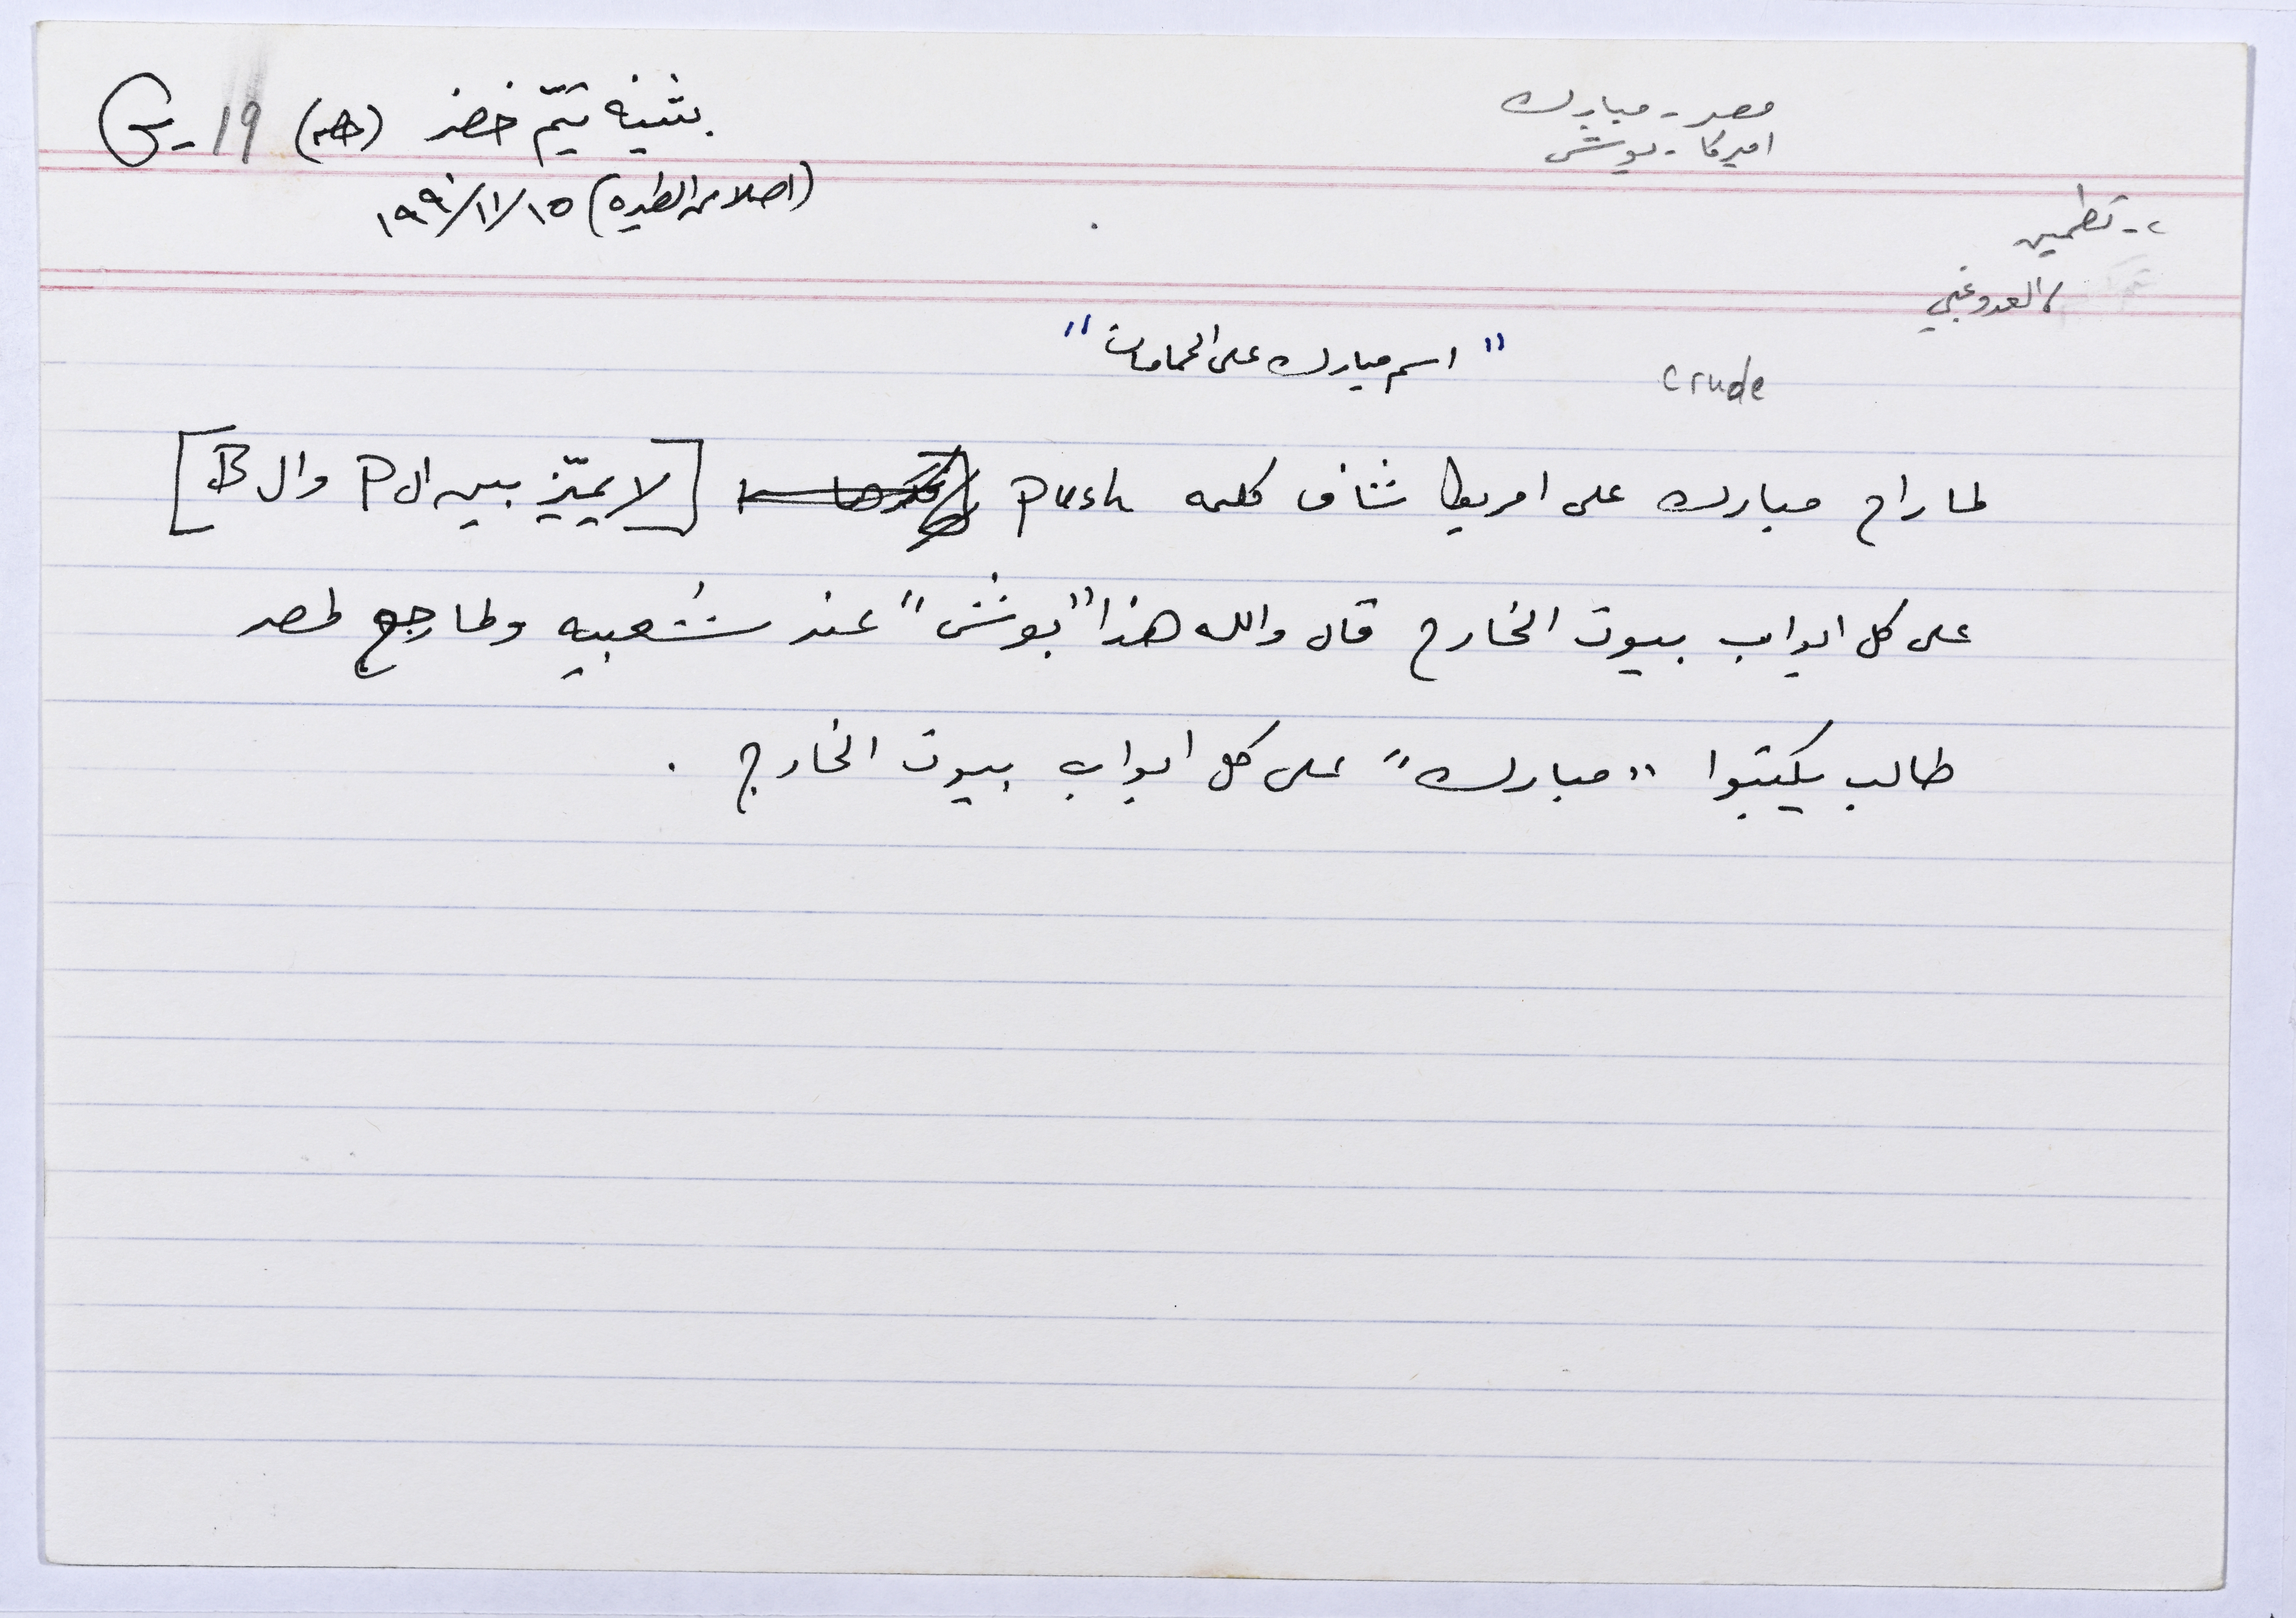 مصر - مبارك
امیرکا - بوش
بثينه تيّم خضر
G-19
(اصلا من الطيره) ١٥/١١/١٩٩٠
- تطمين
العدو غبي
"اسم مبارك على الحمامات"
crude
لما راح مبارك على امريكا شاف كلمه push [لا يميّز بين ال P وال B]
على كل ابواب بيوت الخارج قال والله هذا "بوش" عند شعبيه ولما رجع لمصر
طالب يكتبوا "مبارك" على كل ابواب بيوت الخارج .